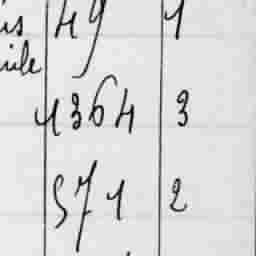 is 49 1
uile
1364 3
571 2